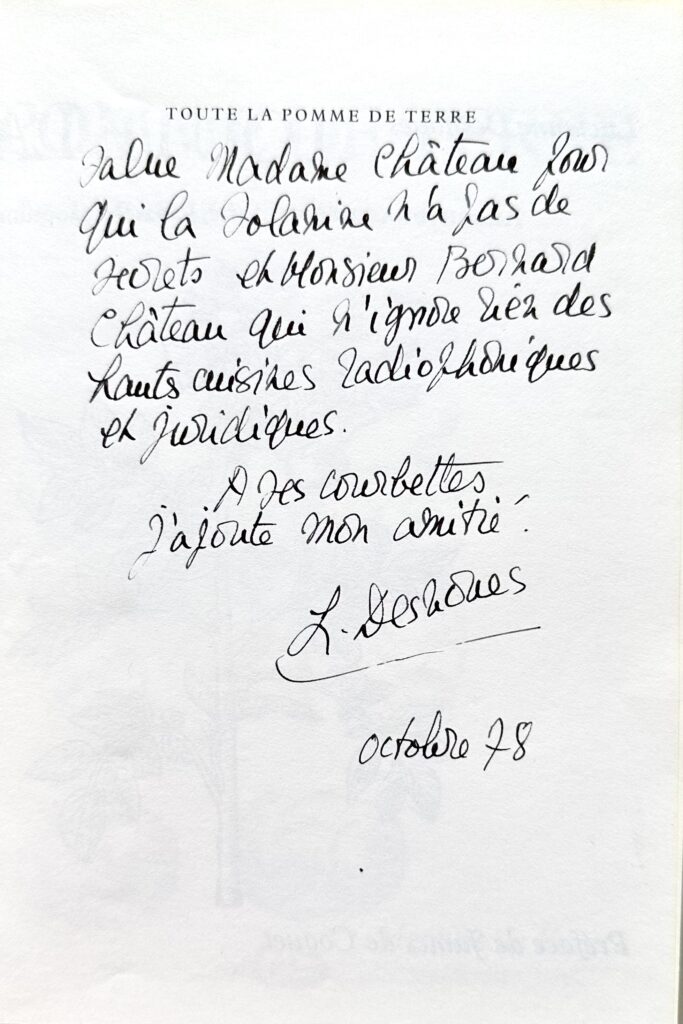 TOUTE LA POMME DE TERRE
salue Madame Château pour
qui la solanine n'a pas de
secrets et Monsieur Bernard
Château qui n'ignore rien des
hauts cuisines radiophoniques
et juridiques.
A ses courbettes
j'ajoute mon amitié.
L. Desnoues
octobre 78
Préface de James de Coquet